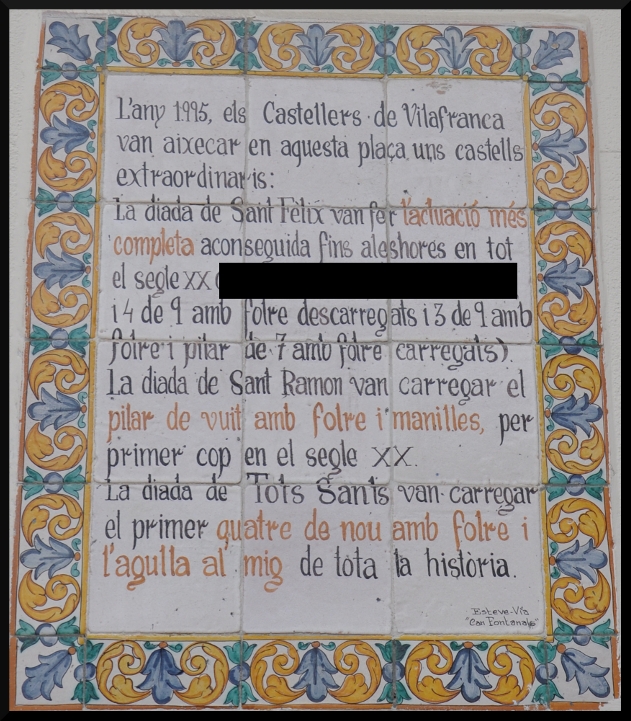 L'any 1995, els Castellers de Vilafranca
van aixecar en aquesta plaça uns castells
extraordinaris:
La diada de Sant Fèlix van fer l'actuació més
completa aconseguida fins aleshores en tot
el segle XX (
i 4 de 9 amb folre descarregats i 3 de 9 amb
folre i pilar de 7 amb folre carregats).
La diada de Sant Ramon van carregar el
pilar de vuit amb folre i manilles, per
primer cop en el segle XX.
La diada de Tots Sants van carregar
el primer quatre de nou amb folre i
l'agulla al mig de tota la història.
Esteve-Vía
"Can Fontanals"